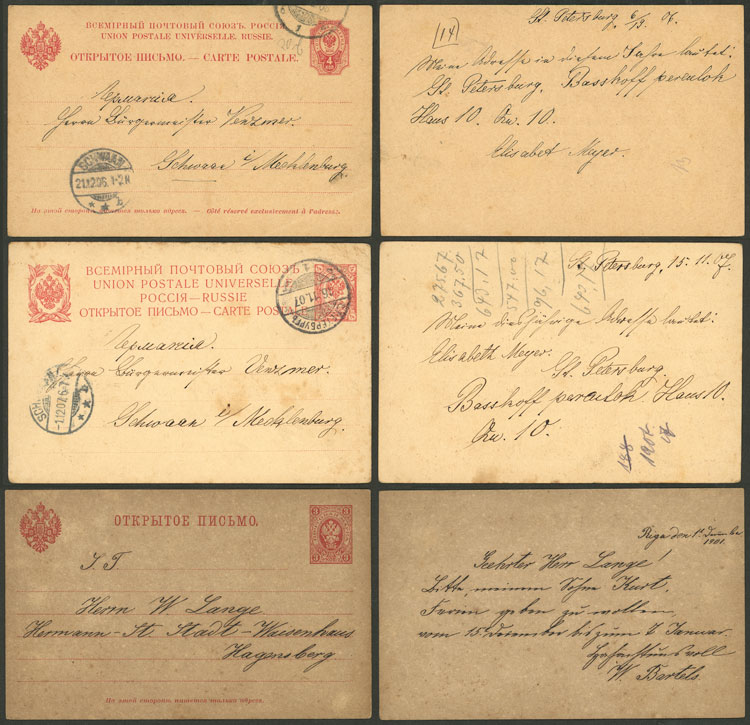 ВСЕМІРНЫЙ ПОЧТОВЫЙ СОЮЗЪ. РОССІЯ
UNION POSTALE UNIVERSELLE. RUSSIE.
ОТКРЫТОЕ ПИСЬМО. — CARTE POSTALE.
Германія.
Herrn Bürgermeister Venzmer.
Schwaan i/ Mecklenburg.
SCHWAAN
21.12.06. 1-2 N
На этой сторонѣ пишется только адресъ. — Côté réservé exclusivement à l'adresse.
St. Petersburg, 6/19. 06.
(14)
Meine Adresse in diesem Jahre lautet:
St. Petersburg, Basskoff pereulok
Haus 10. Qu. 10.
Elisabet Meyer.
ВСЕМІРНЫЙ ПОЧТОВЫЙ СОЮЗЪ
UNION POSTALE UNIVERSEL
РОССІЯ—RUSSIE
ОТКРЫТОЕ ПИСЬМО—CARTE POSTA
26.11.07
Германія.
Herrn Bürgermeister Venzmer.
SCH
1.12.07. 6-7
Schwaan i/ Mecklenburg.
27567
367.50
643.17
547.00
96.17
St. Petersburg, 15. 11. 07.
Meine diesjährige Adresse lautet:
Elisabeth Meyer.
St. Petersburg.
Basskoff pereulok Haus 10.
Qu. 10.
ОТКРЫТОЕ ПИСЬМО.
3 3
S. T.
Herrn W Lange
Hermann-St. Stadt-Waisenhaus
Hagensberg
На этой сторонѣ пишется только адресъ.
Riga den 1. Dezember
1901.
Geehrter Herr Lange!
Bitte meinem Sohne Kurt,
Ferien geben zu wollen
vom 15 Dezember bis zum 7 Januar.
Hochachtungsvoll
W. Bartels